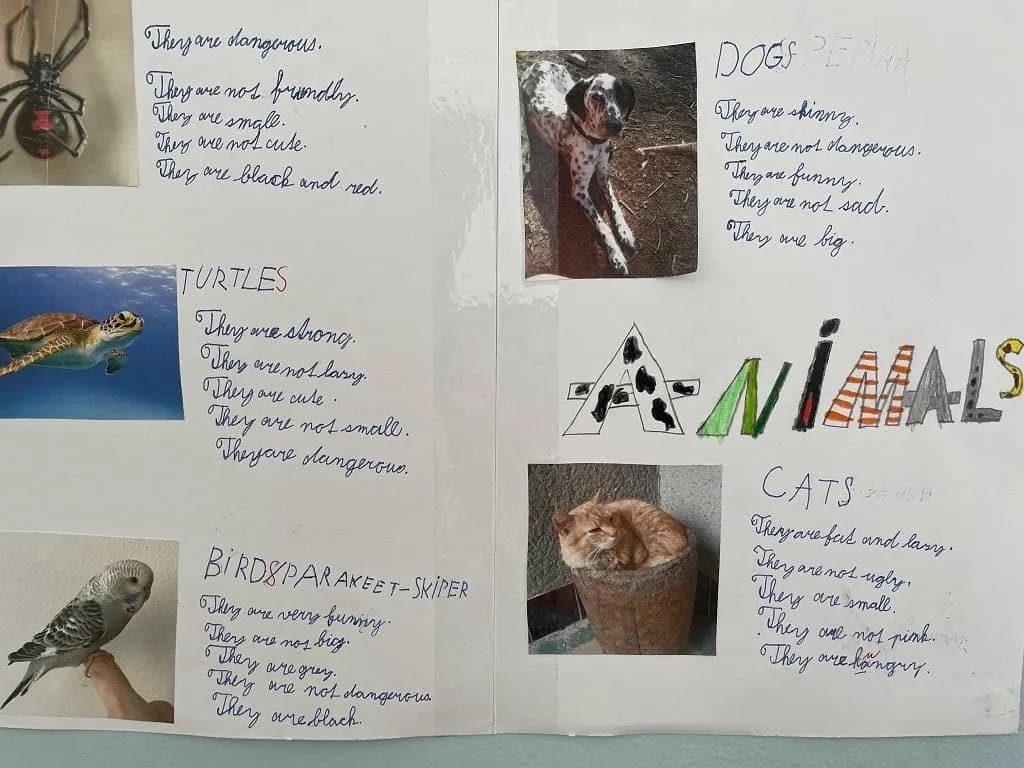 They are dangerous.
They are not friendly.
They are small.
They are not cute.
They are black and red.
TURTLES
They are strong.
They are not lazy.
They are cute.
They are not small.
They are dangerous.
BIRDS PARAKEET-SKIPER
They are very funny.
They are not big.
They are grey.
They are not dangerous.
They are black.
DOGS PEPINA
They are skinny.
They are not dangerous.
They are funny.
They are not sad.
They are big.
ANIMALS
CATS
They are fat and lazy.
They are not ugly.
They are small.
They are not pink.
They are hungry.